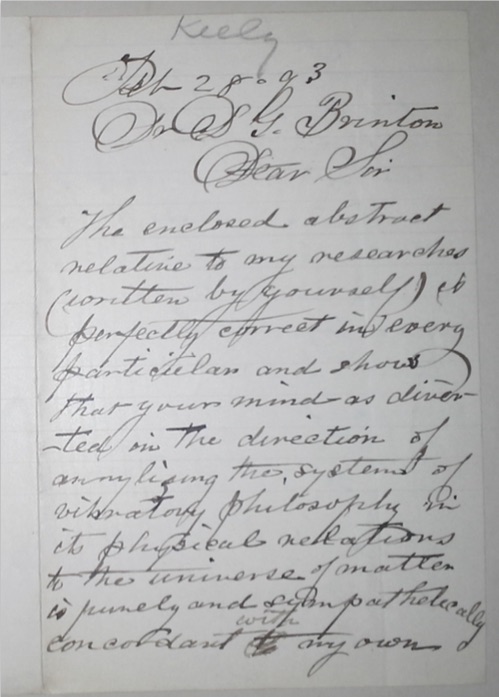 Keely
Feb 28-93
Dr D G. Brinton
Dear Sir
The enclosed abstract
relative to my researches
(written by yourself) is
perfectly correct in every
particular and shows
that your mind as diver-
-ted in the direction of
annylising the system of
vibratory philosophy in
its physical relations
to the universe of matter
is purely and sympathetically
concordant with my own